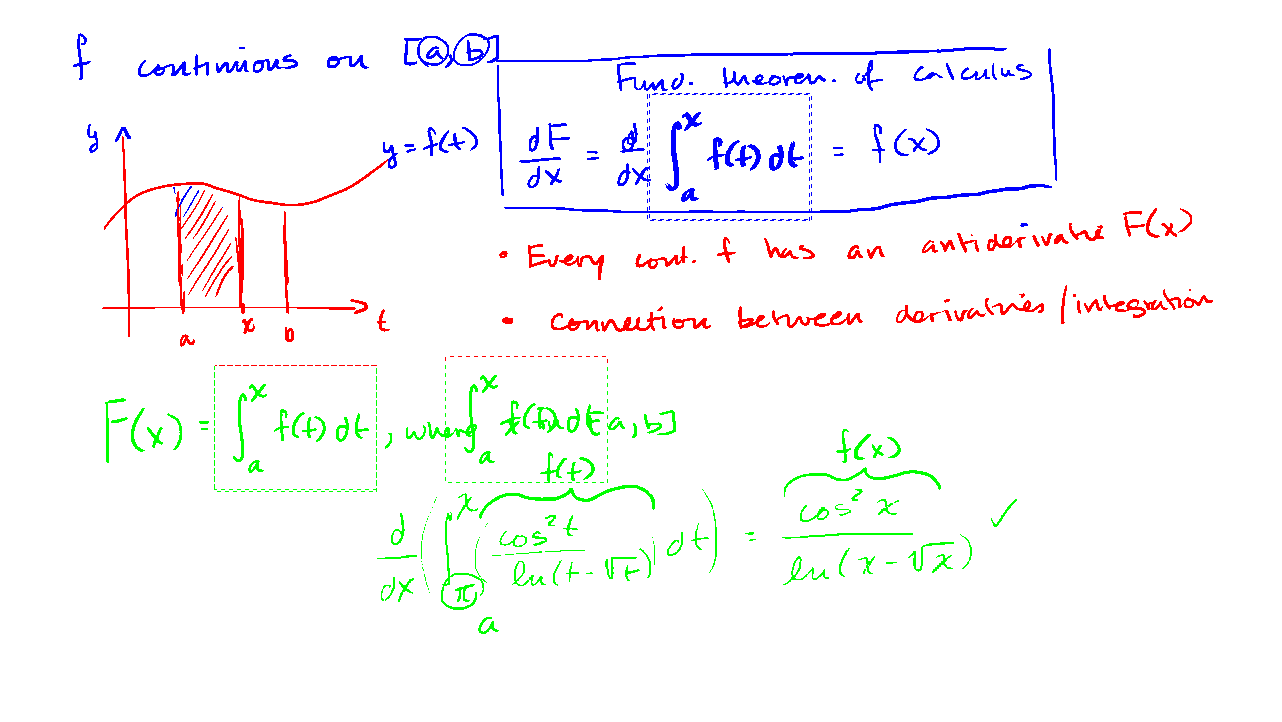 f continuous on [a,b]
Fund. theorem. of calculus
dF/dx = d/dx ∫_a^x f(t) dt = f(x)
y
y = f(t)
a x b t
• Every cont. f has an antiderivative F(x)
• Connection between derivatives/integration
F(x) = ∫_a^x f(t) dt, where ∫_a^x f(t) dt a, b]
f(t) f(x)
d/dx (∫_π^x (cos² t / ln(t - √t)) dt) = cos² x / ln(x - √x) ✓
a